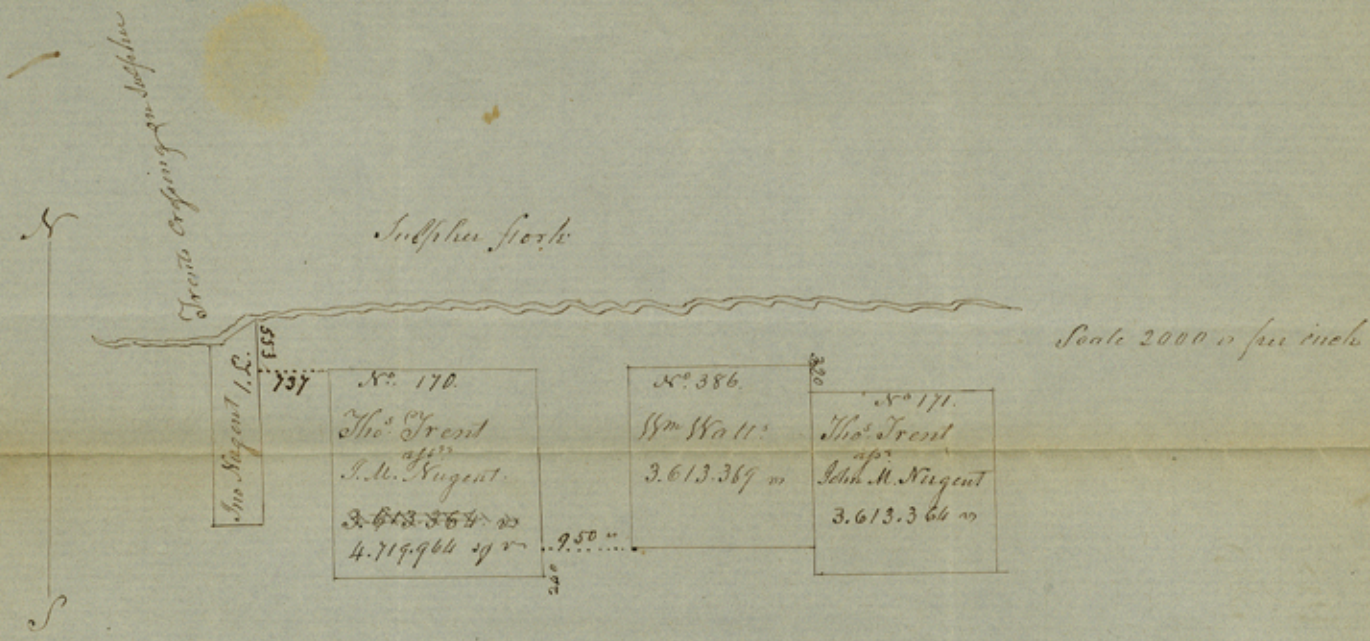 Trents Crossing on Sulpher
N
Sulpher fork
Scale 2000 v per inch
553
737
Jno Nugent 1. L.
No. 170.
Thos. Trent
J. M. Nugent.
3.613.364 v
4.719.964 sq v
950 v
No 386.
Wm Watts
3.613.369 v
320
No 171.
Thos. Trent
John M. Nugent
3.613.364 v
S